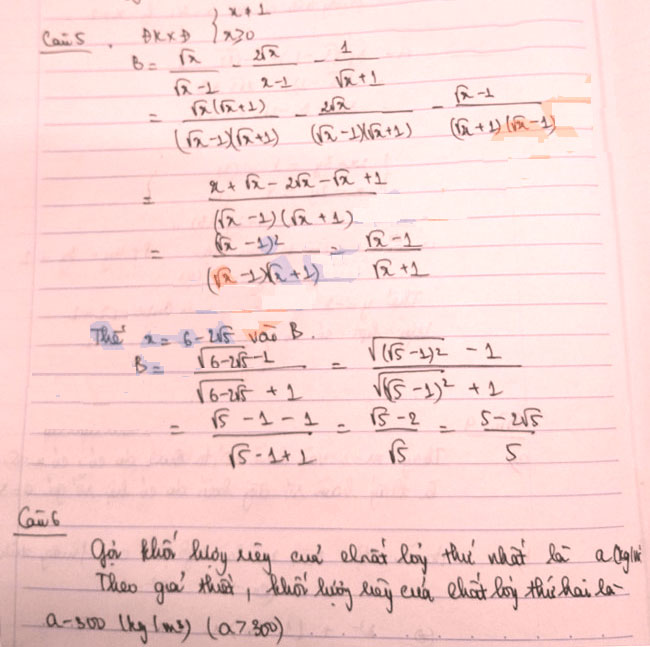 Câu 5. ĐKXĐ { x ≠ 1
x ≥ 0
B = √x/(√x-1) - 2√x/(x-1) - 1/(√x+1)
= √x(√x+1)/((√x-1)(√x+1)) - 2√x/((√x-1)(√x+1)) - (√x-1)/((√x+1)(√x-1))
= (x + √x - 2√x - √x + 1)/((√x-1)(√x+1))
= (√x-1)²/((√x-1)(√x+1)) = (√x-1)/(√x+1)
Thế x = 6-2√5 vào B.
B = (√(6-2√5) - 1)/(√(6-2√5) + 1) = (√((√5-1)²) - 1)/(√((√5-1)²) + 1)
= (√5 - 1 - 1)/(√5 - 1 + 1) = (√5-2)/√5 = (5-2√5)/5
Câu 6
Gọi khối lượng riêng của chất lỏng thứ nhất là a (kg/m³
Theo giả thiết, khối lượng riêng của chất lỏng thứ hai là
a-300 (kg/m³) (a>300)